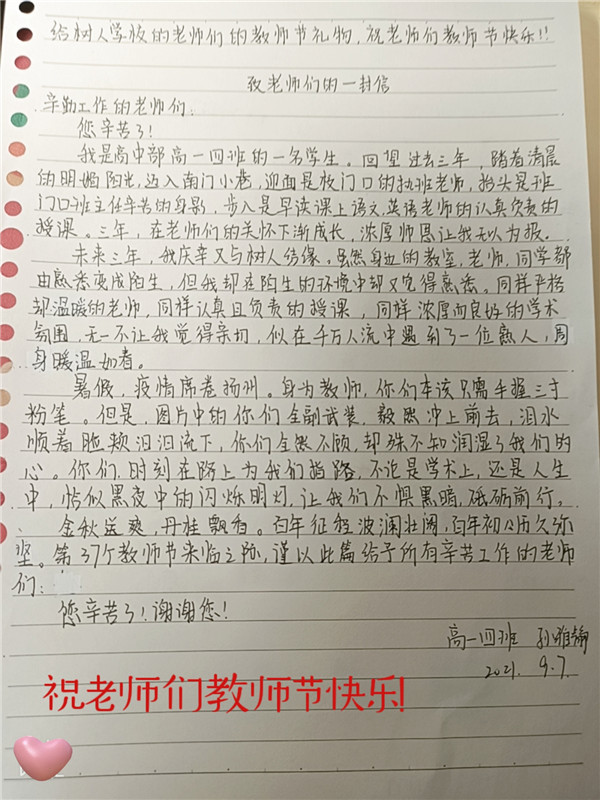 给树人学校的老师们的教师节礼物,祝老师们教师节快乐!!
致老师们的一封信
辛勤工作的老师们:
您辛苦了!
我是高中部高一四班的一名学生。回望过去三年,踏着清晨
的明媚阳光,迈入南门小巷,迎面是校门口的执班老师,抬头是班
门口班主任辛苦的身影,步入是早读课上语文英语老师的认真负责的
授课。三年,在老师们的关怀下渐成长,浓厚师恩让我无以为报。
未来三年,我庆幸又与树人结缘。虽然身边的教室,老师,同学都
由熟悉变成陌生,但我却在陌生的环境中却又觉得熟悉。同样严格
却温暖的老师,同样认真且负责的授课,同样浓厚而良好的学术
氛围,无一不让我觉得亲切,似在千万人流中遇到了一位熟人,周
身暖温如春。
暑假,疫情席卷扬州。身为教师,你们本该只需手握三寸
粉笔。但是,图片中的你们全副武装,毅然冲上前去,泪水
顺着脸颊汩汩流下,你们全然不顾,却殊不知润湿了我们的
心。你们,时刻在路上为我们指路,不论是学术上,还是人生
中,恰似黑夜中的闪烁明灯,让我们不惧黑暗,砥砺前行。
金秋送爽,丹桂飘香。百年征程波澜壮阔,百年初心历久弥
坚。第37个教师节来临之际,谨以此篇给予所有辛苦工作的老师
们:
您辛苦了!谢谢您!
高一四班 孙雅静
2021. 9.7.
祝老师们教师节快乐!